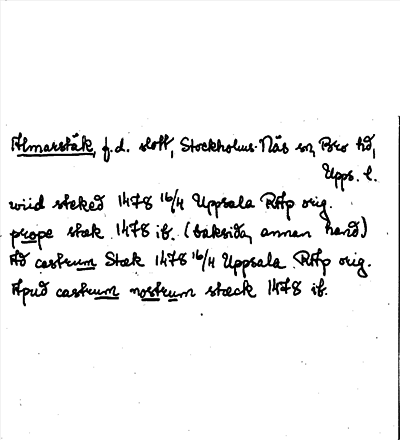 Almarstäk, f.d. slott, Stockholms-Näs sn, Bro hd,
Upps. l.
wiid steked 1478 16/4 Uppsala RAp orig.
prope stæk 1478 ib. (baksida, annan hand)
Ad castrum Stæk 1478 16/4 Uppsala RAp orig.
Apud castrum nostrum stæck 1478 ib.